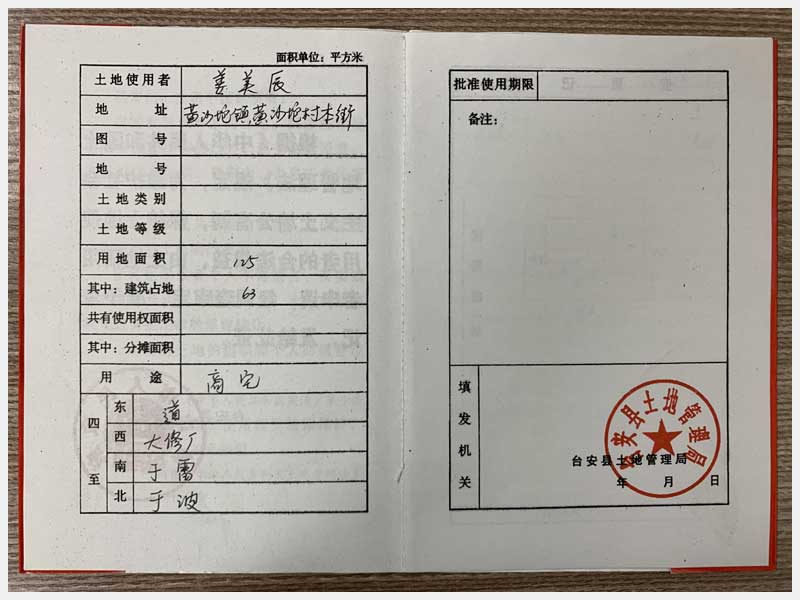 面积单位：平方米
土地使用者 姜美辰
地 址 黄沙坨镇黄沙坨村本街
图 号
地 号
土地类别
土地等级
用地面积 125
其中：建筑占地 63
共有使用权面积
其中：分摊面积
用 途 商宅
四至
东 道
西 大修厂
南 于雷
北 于波
批准使用期限
备注：
填发机关
台安县土地管理局
台安县土地管理局
年 月 日